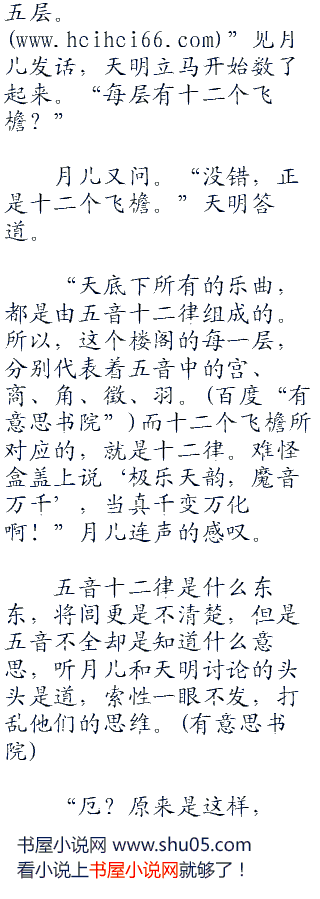 五层。
(www.hcihci66.com)”见月
儿发话，天明立马开始数了
起来。“每层有十二个飞
檐？”
月儿又问。“没错，正
是十二个飞檐。”天明答
道。
“天底下所有的乐曲，
都是由五音十二律组成的。
所以，这个楼阁的每一层，
分别代表着五音中的宫、
商、角、徵、羽。(百度“有
意思书院”)而十二个飞檐所
对应的，就是十二律。难怪
盒盖上说‘极乐天韵，魔音
万千’，当真千变万化
啊！”月儿连声的感叹。
五音十二律是什么东
东，将闾更是不清楚，但是
五音不全却是知道什么意
思，听月儿和天明讨论的头
头是道，索性一眼不发，打
乱他们的思维。(有意思书
院)
“厄？原来是这样，
书屋小说网 www.shu05.com
看小说上书屋小说网就够了！